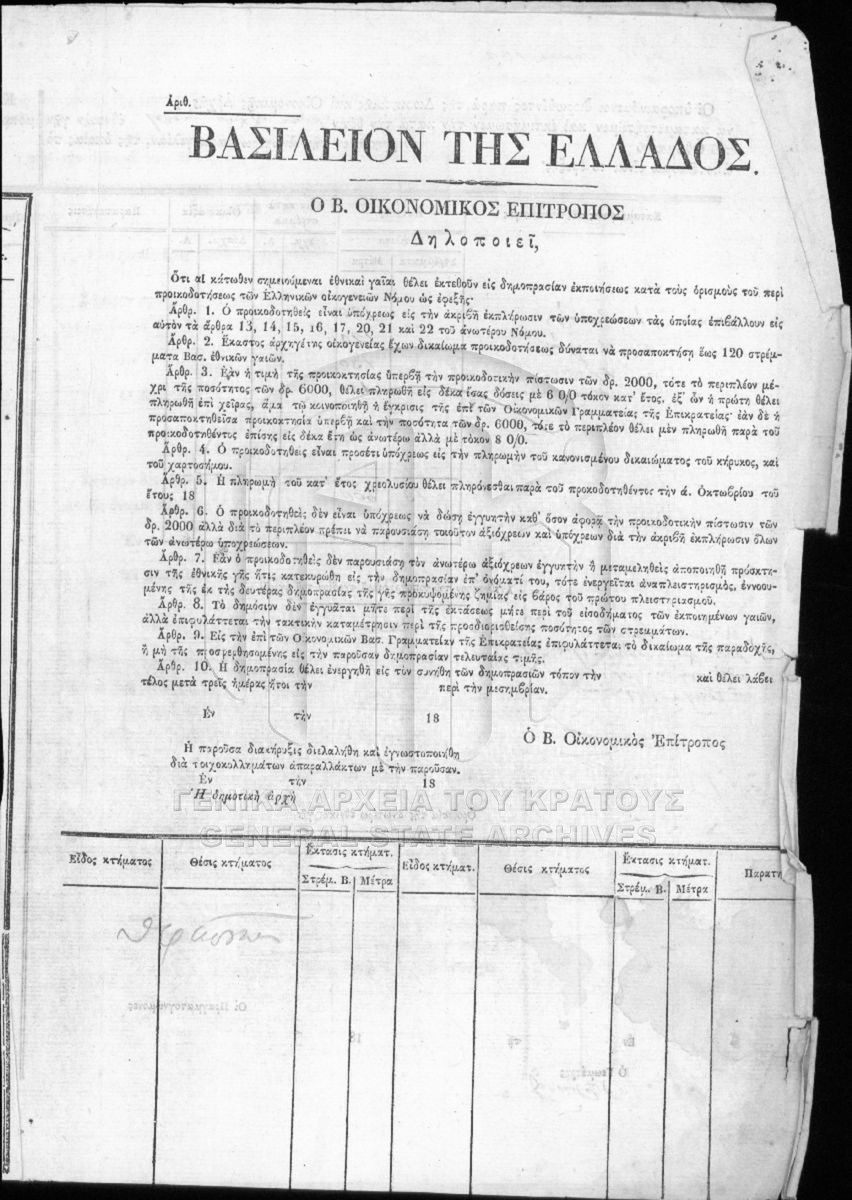 Ἀριθ.
ΒΑΣΙΛΕΙΟΝ ΤΗΣ ΕΛΛΑΔΟΣ.
Ο Β. ΟΙΚΟΝΟΜΙΚΟΣ ΕΠΙΤΡΟΠΟΣ
Δηλοποιεῖ,
Ὅτι αἱ κάτωθεν σημειούμεναι ἐθνικαὶ γαῖαι θέλει ἐκτεθοῦν εἰς δημοπρασίαν ἐκποιήσεως κατὰ τοὺς ὁρισμοὺς τοῦ περὶ
προικοδοτήσεως τῶν Ἑλληνικῶν οἰκογενειῶν Νόμου ὡς ἐφεξῆς·
Ἄρθρ. 1. Ὁ προικοδοτηθεὶς εἶναι ὑπόχρεως εἰς τὴν ἀκριβῆ ἐκπλήρωσιν τῶν ὑποχρεώσεων τὰς ὁποίας ἐπιβάλλουν εἰς
αὐτὸν τὰ ἄρθρα 13, 14, 15, 16, 17, 20, 21 καὶ 22 τοῦ ἀνωτέρου Νόμου.
Ἄρθρ. 2. Ἕκαστος ἀρχηγέτης οἰκογενείας ἔχων δικαίωμα προικοδοτήσεως δύναται νὰ προσαποκτήσῃ ἕως 120 στρέμ-
ματα Βασ. ἐθνικῶν γαιῶν.
Ἄρθρ. 3. Ἐὰν ἡ τιμὴ τῆς προικοκτησίας ὑπερβῇ τὴν προικοδοτικὴν πίστωσιν τῶν δρ. 2000, τότε τὸ περιπλέον μέ-
χρι τῆς ποσότητος τῶν δρ. 6000, θέλει πληρωθῆ εἰς δέκα ἴσας δόσεις μὲ 6 0/0 τόκον κατ' ἔτος, ἐξ' ὧν ἡ πρώτη θέλει
πληρωθῆ ἐπὶ χεῖρας, ἅμα τῷ κοινοποιηθῇ ἡ ἔγκρισις τῆς ἐπὶ τῶν Οἰκονομικῶν Γραμματείας τῆς Ἐπικρατείας· ἐὰν δὲ ἡ
προσαποκτηθεῖσα προικοκτησία ὑπερβῇ καὶ τὴν ποσότητα τῶν δρ. 6000, τότε τὸ περιπλέον θέλει μὲν πληρωθῆ παρὰ τοῦ
προικοδοτηθέντος ἐπίσης εἰς δέκα ἔτη ὡς ἀνωτέρω ἀλλὰ μὲ τόκον 8 0/0.
Ἄρθρ. 4. Ὁ προικοδοτηθεὶς εἶναι προσέτι ὑπόχρεως εἰς τὴν πληρωμὴν τοῦ κανονισμένου δικαιώματος τοῦ κήρυκος, καὶ
τοῦ χαρτοσήμου.
Ἄρθρ. 5. Ἡ πληρωμὴ τοῦ κατ' ἔτος χρεολυσίου θέλει πληρόνεσθαι παρὰ τοῦ προκοδοτηθέντος τὴν ά. Ὀκτωβρίου τοῦ
ἔτους 18
Ἄρθρ. 6. Ὁ προικοδοτηθεὶς δὲν εἶναι ὑπόχρεως νὰ δώσῃ ἐγγυητὴν καθ' ὅσον ἀφορᾷ τὴν προικοδοτικὴν πίστωσιν τῶν
δρ. 2000 ἀλλὰ διὰ τὸ περιπλέον πρέπει νὰ παρουσιάσῃ τοιοῦτον ἀξιόχρεων καὶ ὑπόχρεων διὰ τὴν ἀκριβῆ ἐκπλήρωσιν ὅλων
τῶν ἀνωτέρω ὑποχρεώσεων.
Ἄρθρ. 7. Ἐὰν ὁ προικοδοτηθεὶς δὲν παρουσιάσῃ τὸν ἀνωτέρω ἀξιόχρεων ἐγγυητὴν ἢ μεταμεληθεὶς ἀποποιηθῇ πρόσκτη-
σιν τῆς ἐθνικῆς γῆς ἥτις κατεκυρώθη εἰς τὴν δημοπρασίαν ἐπ' ὀνόματί του, τότε ἐνεργεῖται ἀναπλειστηρισμὸς, ἐννοου-
μένης τῆς ἐκ τῆς δευτέρας δημοπρασίας τῆς γῆς προκυψομένης ζημίας εἰς βάρος τοῦ πρώτου πλειστηριασμοῦ.
Ἄρθρ. 8. Τὸ δημόσιον δὲν ἐγγυᾶται μήτε περὶ τῆς ἐκτάσεως μήτε περὶ τοῦ εἰσοδήματος τῶν ἐκποιημένων γαιῶν,
ἀλλὰ ἐπιφυλάττεται τὴν τακτικὴν καταμέτρησιν περὶ τῆς προσδιορισθείσης ποσότητος τῶν στρεμμάτων.
Ἄρθρ. 9. Εἰς τὴν ἐπὶ τῶν Οἰκονομικῶν Βασ. Γραμματείαν τῆς Ἐπικρατείας ἐπιφυλάττεται τὸ δικαίωμα τῆς παραδοχῆς,
ἢ μὴ τῆς προσφερθησομένης εἰς τὴν παροῦσαν δημοπρασίαν τελευταίας τιμῆς.
Ἄρθρ. 10. Ἡ δημοπρασία θέλει ἐνεργηθῆ εἰς τὸν συνήθη τῶν δημοπρασιῶν τόπον τὴν καὶ θέλει λάβει
τέλος μετὰ τρεῖς ἡμέρας ἤτοι τὴν περὶ τὴν μεσημβρίαν.
Ἐν τὴν 18
Ὁ Β. Οἰκονομικὸς Ἐπίτροπος
Ἡ παροῦσα διακήρυξις διελαλήθη καὶ ἐγνωστοποιήθη
διὰ τοιχοκολλημάτων ἀπαραλλάκτων μὲ τὴν παροῦσαν.
Ἐν τὴν 18
Ἡ δημοτικὴ ἀρχὴ
ΓΕΝΙΚΑ ΑΡΧΕΙΑ ΤΟΥ ΚΡΑΤΟΥΣ
GENERAL STATE ARCHIVES
Εἶδος κτήματος Θέσις κτήματος Ἔκτασις κτήματ. Εἶδος κτήματ. Θέσις κτήματος Ἔκτασις κτήματ. Παρατη
Στρέμ. Β. Μέτρα Στρέμ. Β. Μέτρα